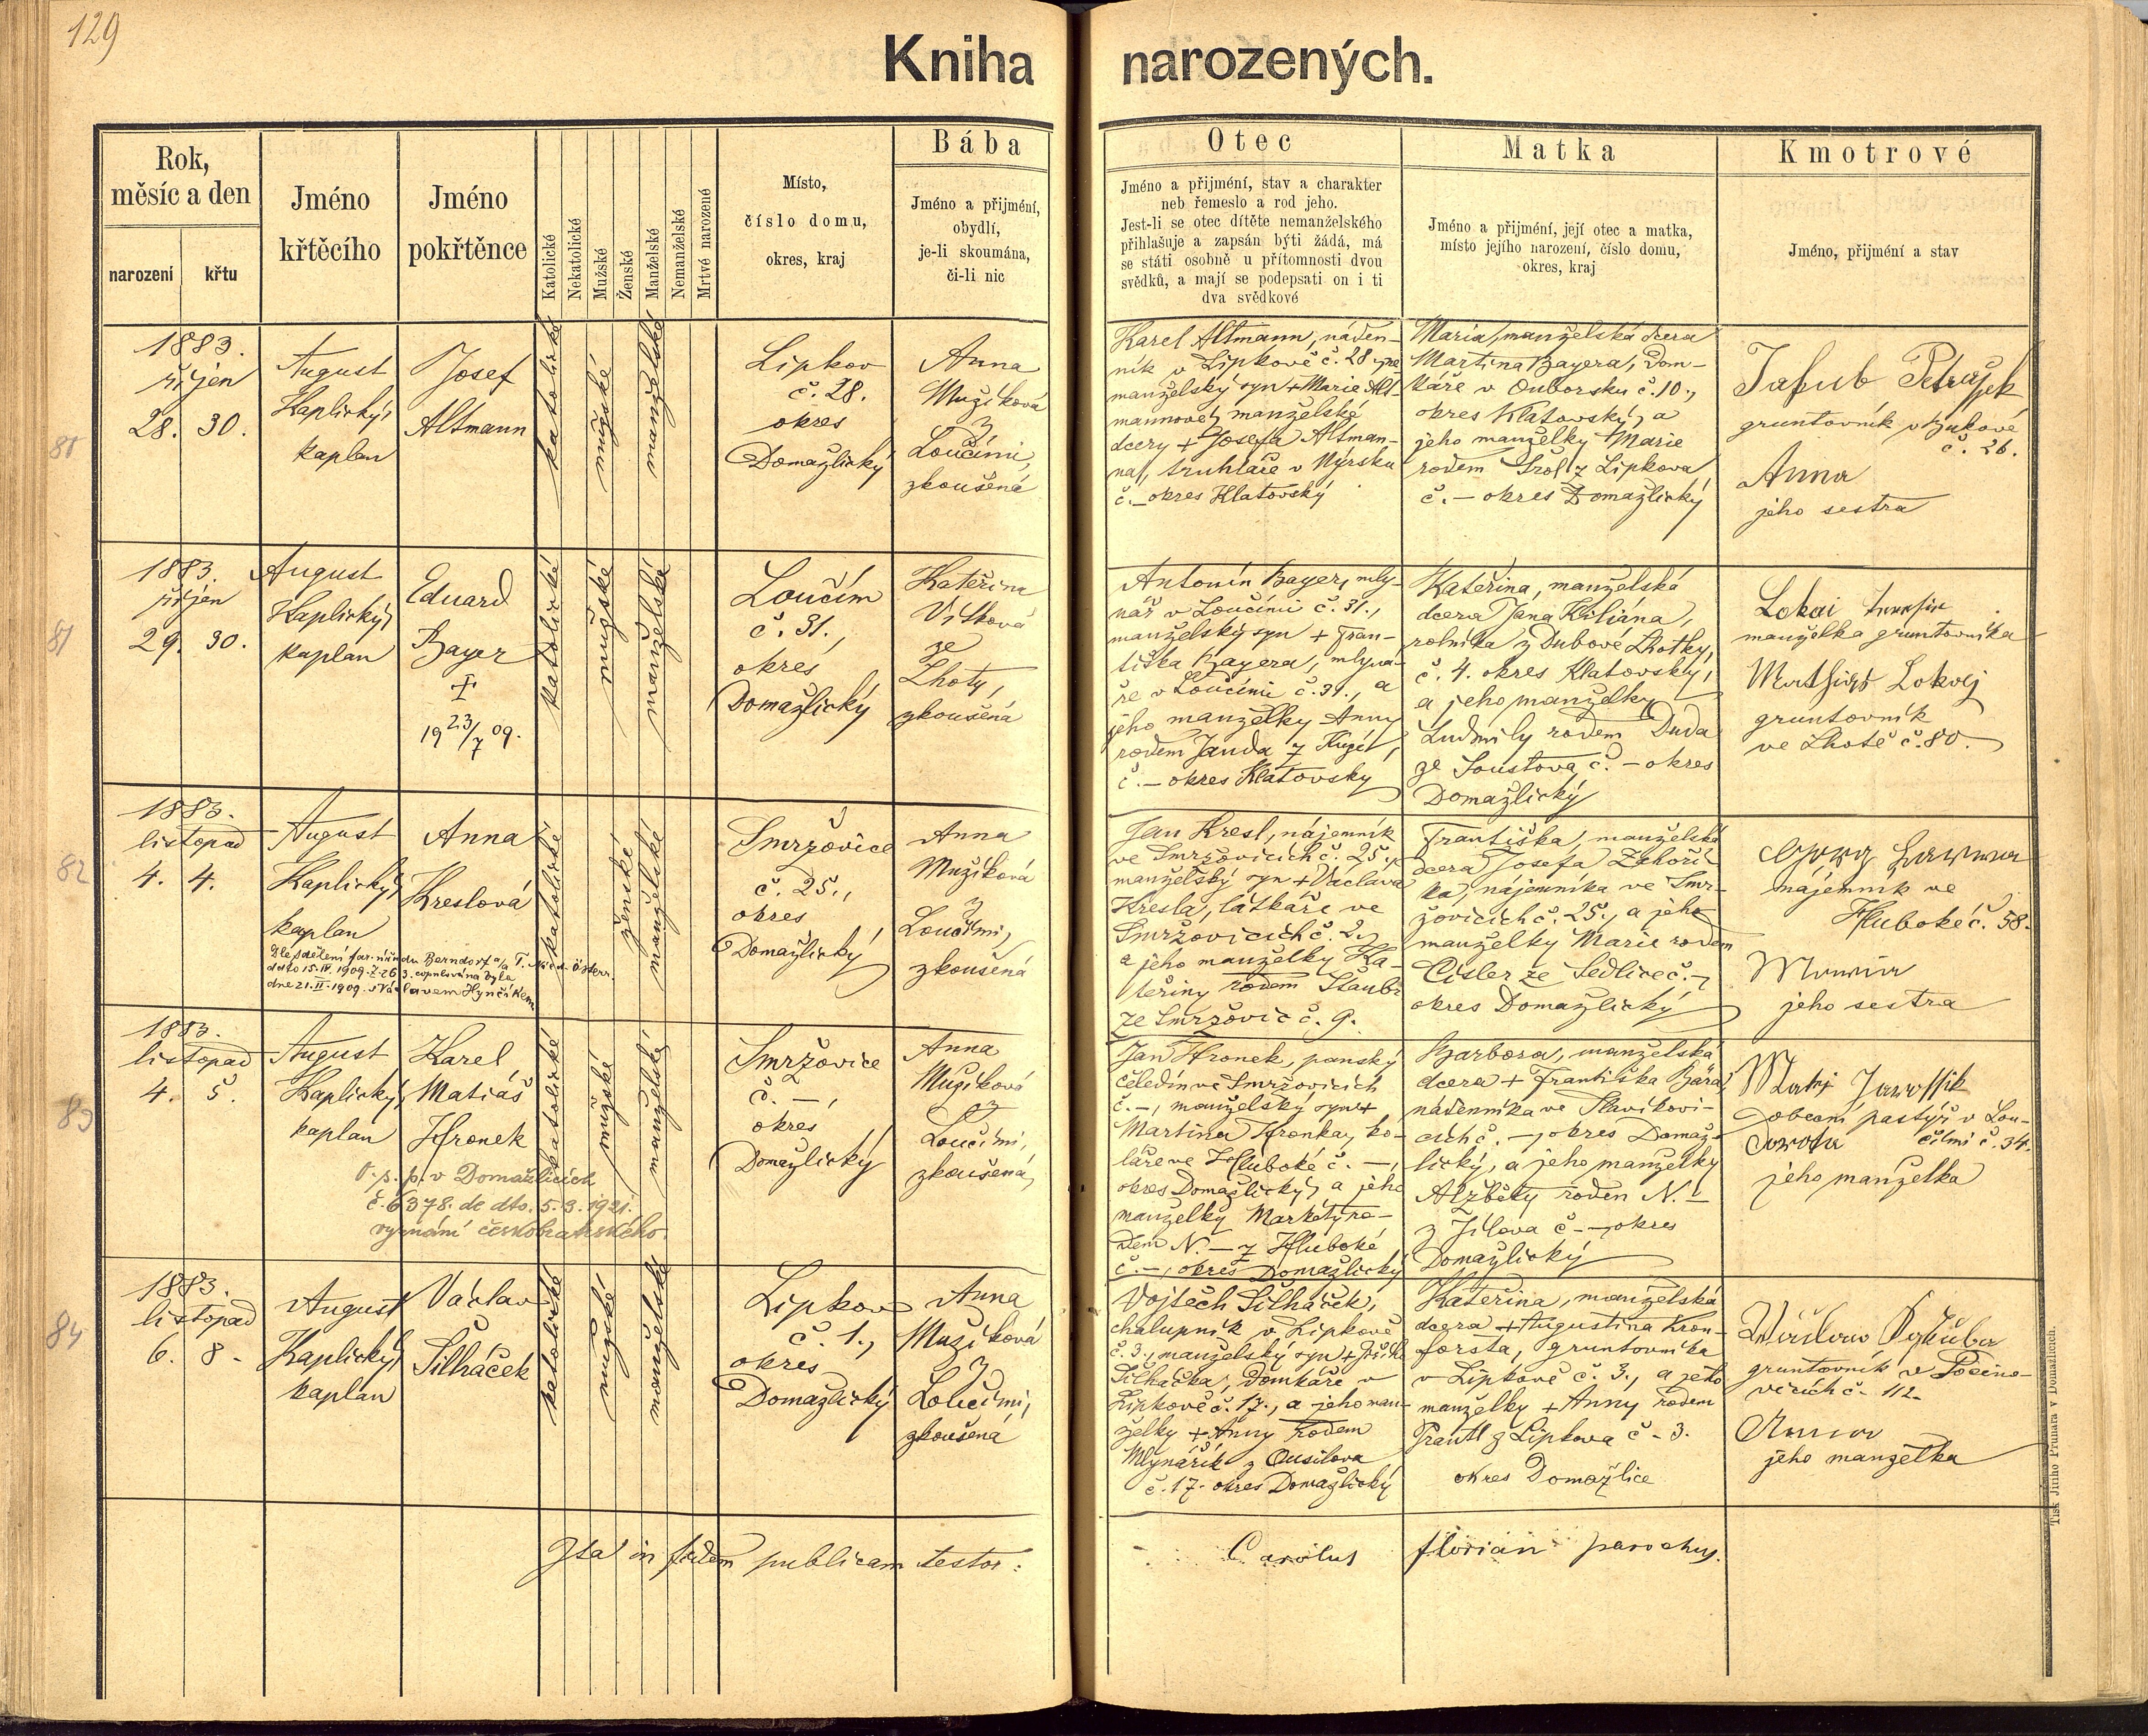 129
Kniha narozených.
Rok, měsíc a den
narození
křtu
Jméno křtěcího
Jméno pokřtěnce
Katolické
Nekatolické
Mužské
Ženské
Manželské
Nemanželské
Mrtvé narozené
Místo,
číslo domu,
okres, kraj
Bába
Jméno a přijmění,
obydlí,
je-li skoumána,
či-li nic
Otec
Jméno a přijmění, stav a charakter
neb řemeslo a rod jeho.
Jest-li se otec dítěte nemanželského
přihlašuje a zapsán býti žádá, má
se státi osobně u přítomnosti dvou
svědků, a mají se podepsati on i ti
dva svědkové
Matka
Jméno a přijmění, její otec a matka,
místo jejího narození, číslo domu,
okres, kraj
Kmotrové
Jméno, přijmění a stav
1883.
říjen
28. 30.
August
Kaplický,
kaplan
Josef
Altmann
katolické
mužské
manželské
Lipkov
č. 28.
okres
Domažlický
Anna
Mužíková
z
Loučimi,
zkoušená
Karel Altmann, náden-
ník v Lipkově č. 28
manželský syn + Marie Alt-
mannové, manželské
dcery + Josefa Altman-
na, truhláře v Nýrsku
č. – okres Klatovský
Maria, manželská dcera
Martina Bayera, dom-
káře v Ouborsku č. 10.,
okres Klatovský, a
jeho manželky Marie
rodem z Lipkova
č. – okres Domažlický
Jakub Petrášek
gruntovník
č. 26.
Anna
jeho sestra
81
1883.
říjen
29. 30.
August
Kaplický,
kaplan
Eduard
Bayer
†
19 23/7 09.
katolické
mužské
manželské
Loučim
č. 31.,
okres
Domažlický
Kateřina
Vítková
ze
Lhoty,
zkoušená
Antonín Bayer, mly-
nář v Loučimi č. 31.,
manželský syn + Fran-
tiška Bayera, mlyná-
ře v Loučimi č. 31., a
jeho manželky Anny
rodem Janda z
č. – okres Klatovský
Kateřina, manželská
dcera Jana Kiliána,
rolníka z Dubové Lhotky,
č. 4. okres Klatovský,
a jeho manželky
Ludmily rodem Duda
ze Soustova č. – okres
Domažlický
Lokai
manželka gruntovníka
Mathias Lokaj
gruntovník
ve Lhotě č. 80.
82
1883.
listopad
4. 4.
August
Kaplický,
kaplan
Anna
Kreslová
Dle sdělení far. úřadu Berndorf a/a T. Nied. Österr.
ddto 15.IV.1909. Z. 263. copulována byla
dne 21.II.1909. s Václavem Hynčíkem
katolické
ženské
manželské
Smržovice
č. 25.,
okres
Domažlický
Anna
Mužíková
z
Loučimi,
zkoušená
Jan Kresl, nájemník
ve Smržovicích č. 25.,
manželský syn + Václava
Kresla, látkáře ve
Smržovicích č. 2.,
a jeho manželky Ka-
teřiny rodem Štaubr
ze Smržovic č. 9.
Františka, manželská
dcera Josefa Zahoří-
ka, nájemníka ve Smr-
žovicích č. 25., a jeho
manželky Marie rodem
Cisler ze Sedlice č. –,
okres Domažlický
Georg
nájemník ve
Hluboké č. 58.
jeho sestra
83
1883.
listopad
4. 5.
August
Kaplický,
kaplan
Karel
Matiáš
Hronek
O. s. p. v Domažlicích
č. 6378. de dto. 5.3.1921.
vyznání českobratrského.
katolické
mužské
manželské
Smržovice
č. –,
okres
Domažlický
Anna
Mužíková
z
Loučimi,
zkoušená,
Jan Hronek, panský
čeledín ve Smržovicích
č. –, manželský syn +
Martina Hronka, ko-
láře ve Hluboké č. –,
okres Domažlický, a jeho
manželky Markéty ro-
dem N. – z Hluboké
č. –, okres Domažlický
Barbora, manželská
dcera + Františka Bára,
nádenníka ve Slavikovi-
cích č. –, okres Domaž-
lický, a jeho manželky
Alžběty rodem N. –
z Jílova č. –, okres
Domažlický
obecní pastýř v Lou-
čimi č. 34.
jeho manželka
84
1883.
listopad
6. 8.
August
Kaplický,
kaplan
Václav
Šilháček
katolické
mužské
manželské
Lipkov
č. 1.,
okres
Domažlický
Anna
Mužíková
z
Loučimi,
zkoušená
Vojtěch Šilháček,
chalupník v Lipkově
č. 3., manželský syn +
Šilháčka, domkáře v
Lipkově č. 17., a jeho man-
želky + Anny rodem
Mlynářík z Ousilova
č. 17. okres Domažlický
Kateřina, manželská
dcera + Augustina Kron-
forsta, gruntovníka
v Lipkově č. 3., a jeho
manželky + Anny rodem
Prantl z Lipkova č. 3.
okres Domažlice
gruntovník v Pocino-
vicích č. 112.
jeho manželka
Ita in fidem publicam testor:
Carolus Florian parochus.
Tisk Jiřího Prunara v Domažlicích.